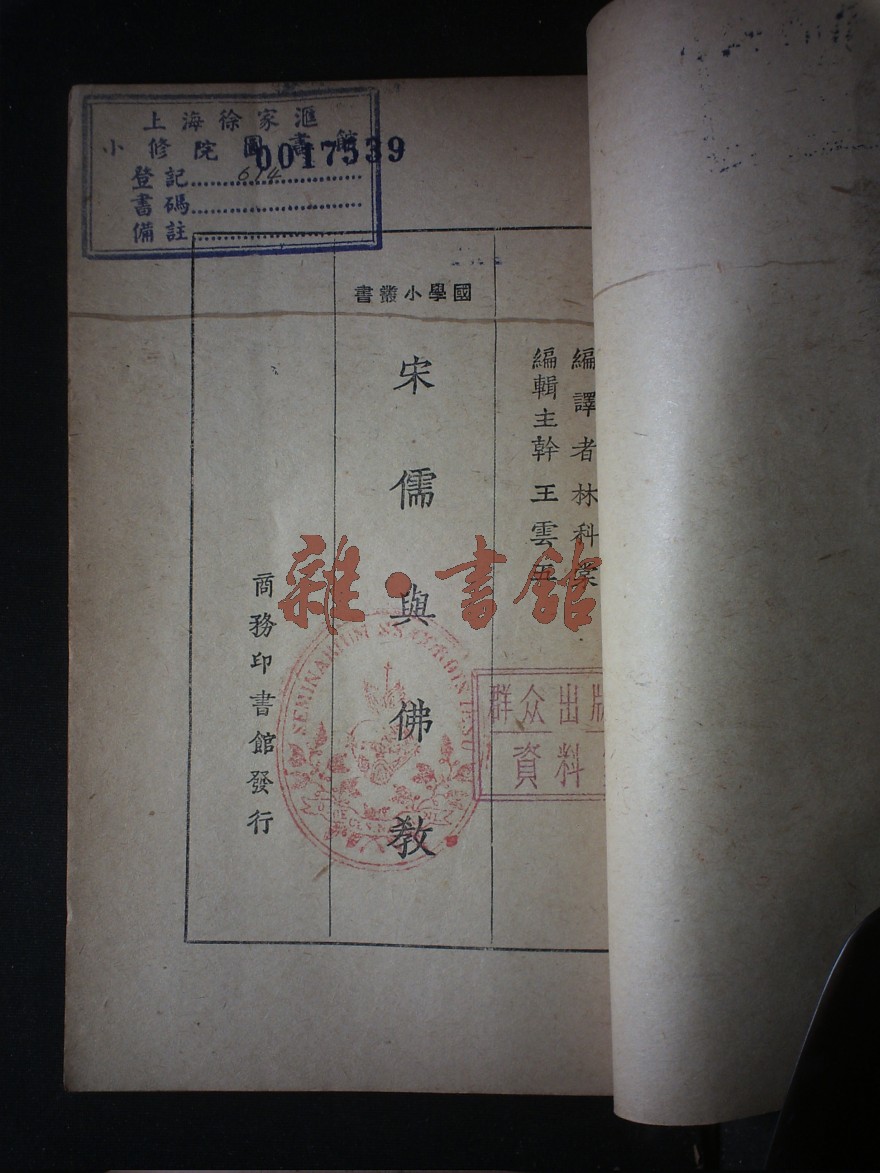 上海徐家滙
小修院圖書館
0017539
登記 614
書碼
備註
編譯者林科棠
編輯主幹王雲五
國學小叢書
宋儒與佛教
商務印書館發行
雜·書館
SEMINARIUM
群众出版
資料